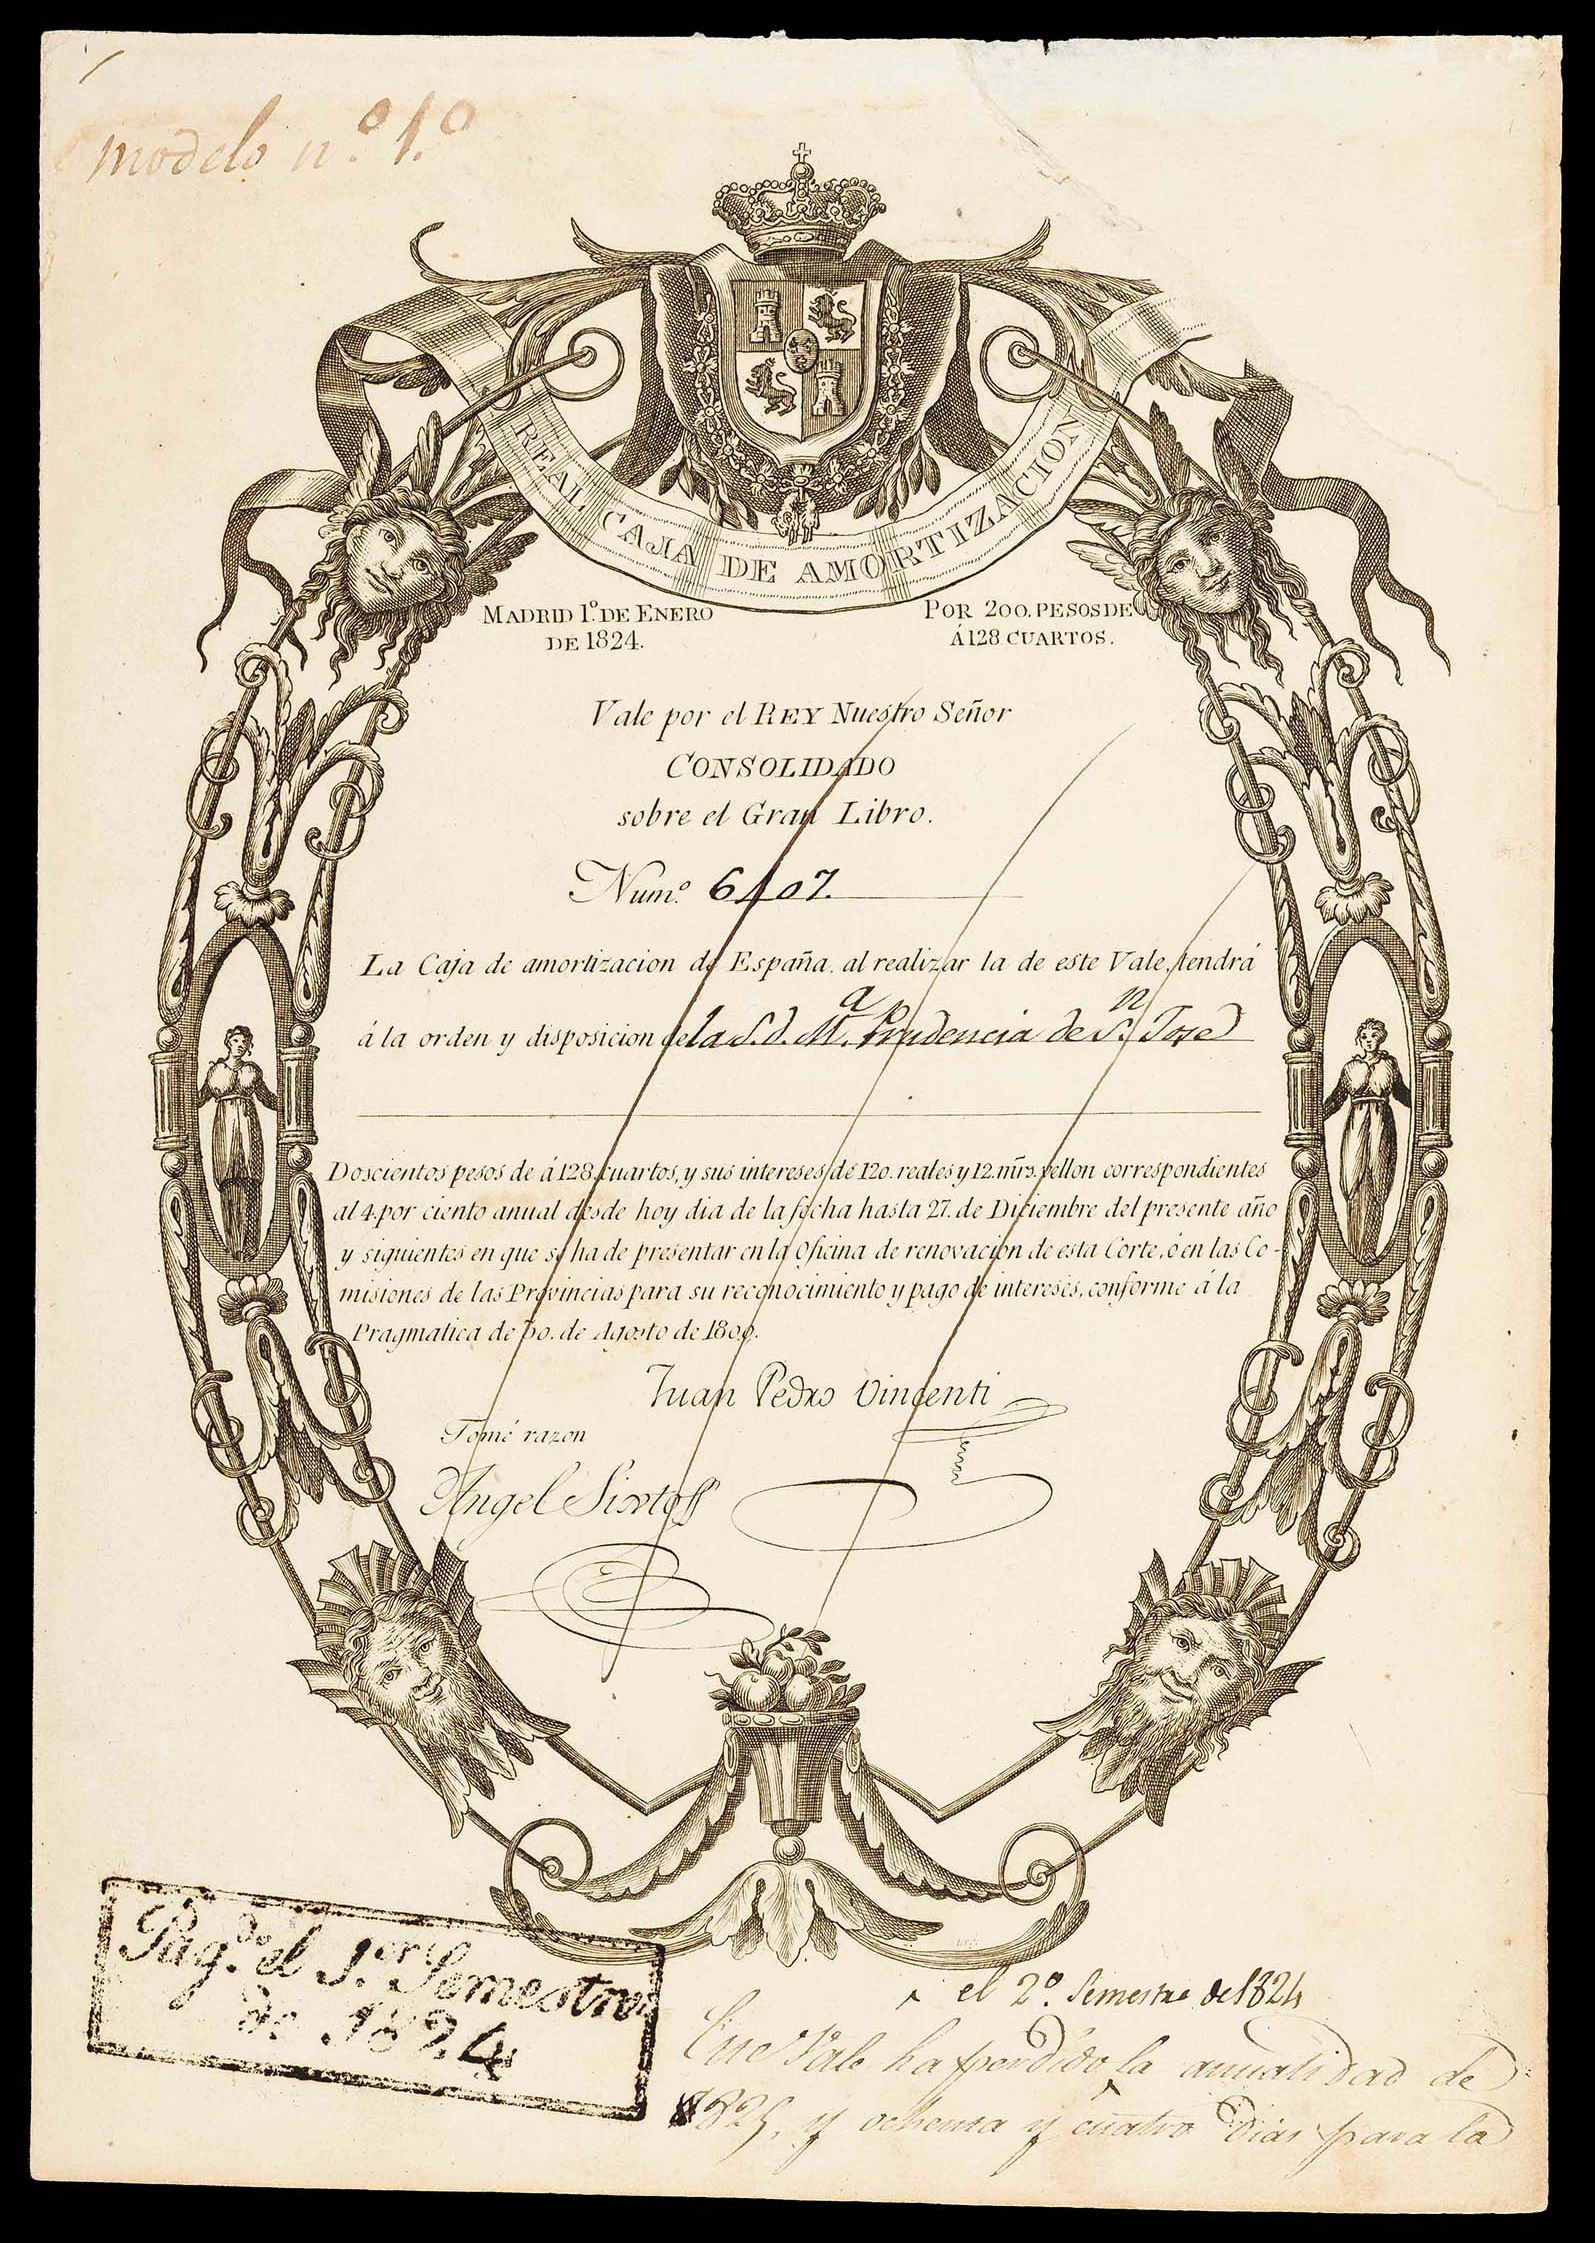 modelo n.º 1.º
REAL CAJA DE AMORTIZACION
MADRID 1.º DE ENERO
DE 1824.
POR 200. PESOS DE
Á 128 CUARTOS.
Vale por el REY Nuestro Señor
CONSOLIDADO
sobre el Gran Libro.
Num.º 6407.
La Caja de amortizacion de España, al realizar la de este Vale, tendrá
á la orden y disposicion de la S. d. M.ª Prudencia de S.n Jose
Doscientos pesos de á 128 cuartos, y sus intereses de 120. reales y 12. mrs. vellon correspondientes
al 4. por ciento anual desde hoy dia de la fecha hasta 27. de Diciembre del presente año
y siguientes en que se ha de presentar en la Oficina de renovacion de esta Corte, ó en las Co-
misiones de las Provincias para su reconocimiento y pago de intereses, conforme á la
Pragmatica de 30. de Agosto de 1800.
Juan Pedro Vincenti
Tomé razon
Angel Sixto
Pag.do el 1.er Semestre
de 1824
el 2.º Semestre de 1824
Este Vale ha perdido la anualidad de
1825, y ochenta y cuatro dias para la